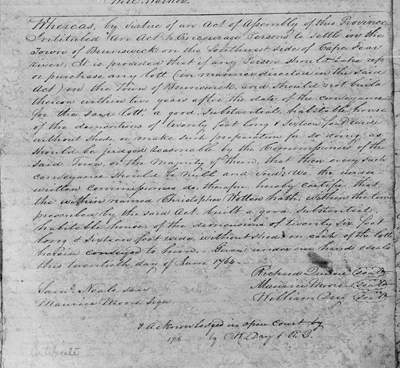 Whereas, by virtue of an Act of Assembly of this Province
Intituled an Act to Encourage Persons to settle in the
Town of Brunswick on the Southwest side of Cape Fear
river. It is provided that if any Person should take up
or purchase any lott (in manner directed in the said
Act) in the Town of Brunswick and should not build
thereon within two years after the date of the conveyance
for the said lott, a good, substantial habitable house
of the dimensions of twenty feet long & sixteen feet wide
without sheds, or make such preparation for so doing, as
should be judged reasonable by the Commissioners of the
said Town, or the Majority of them, that then every such
conveyance should be null and void. We, the under
written commissioners do therefore hereby certify that
the within named Christopher Wotten hath, within the time
prescribed by the said Act, built a good, substantial
habitable house, of the dimensions of twenty six feet
long & sixteen feet wide, without sheds on each of the lotts
before conveyed to him. Given under our hands & seals
this twentieth day of June 1764.
Richard Seal
Saml Neale Maurice Moore Seal
Maurice Moore William Dry Seal
Acknowledged in open Court by
by W. Dry